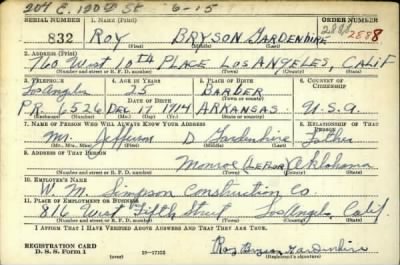 204 E. 120th St 6-15
SERIAL NUMBER 1. NAME (Print) ORDER NUMBER
832 ROY BRYSON GARDENHIRE 2888
(First) (Middle) (Last)
2. ADDRESS (Print)
760 West 10th PLACE LOS ANGELES, CALIF
(Number and street or R. F. D. number) (Town) (County) (State)
3. TELEPHONE 4. AGE IN YEARS 5. PLACE OF BIRTH 6. COUNTRY OF CITIZENSHIP
Los Angeles 25 BARBER
DATE OF BIRTH (Town or county)
PR. 6526 DEC. 17 1914 ARKANSAS U.S.A.
(Exchange) (Number) (Mo.) (Day) (Yr.) (State or country)
7. NAME OF PERSON WHO WILL ALWAYS KNOW YOUR ADDRESS 8. RELATIONSHIP OF THAT PERSON
Mr. Jefferson D. Gardenhire Father
(Mr., Mrs., Miss) (First) (Middle) (Last)
9. ADDRESS OF THAT PERSON
Monroe (LeFlore) Oklahoma
(Number and street or R. F. D. number) (Town) (County) (State)
10. EMPLOYER'S NAME
W. M. Simpson Construction Co.
11. PLACE OF EMPLOYMENT OR BUSINESS
816 West Fifth Street Los Angeles Calif.
(Number and street or R. F. D. number) (Town) (County) (State)
I AFFIRM THAT I HAVE VERIFIED ABOVE ANSWERS AND THAT THEY ARE TRUE.
REGISTRATION CARD
D. S. S. Form 1 Roy Bryson Gardenhire
(Registrant's signature)